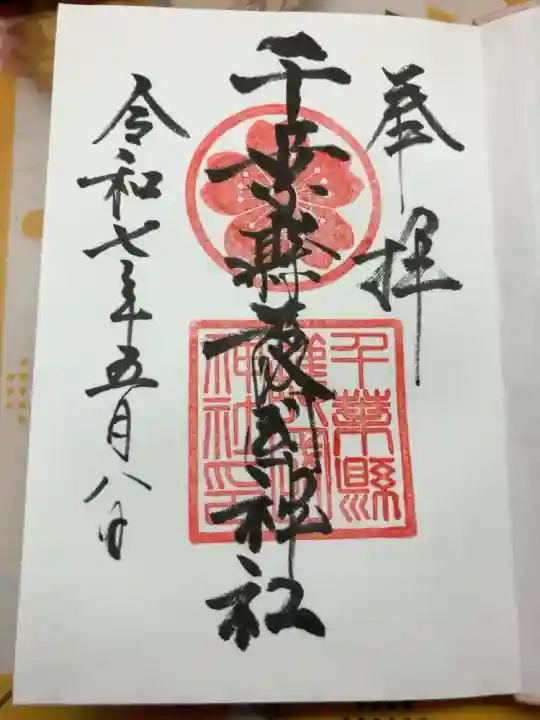 奉拝
千葉縣護国神社
千葉縣
護國
神社印
令和七年五月八日